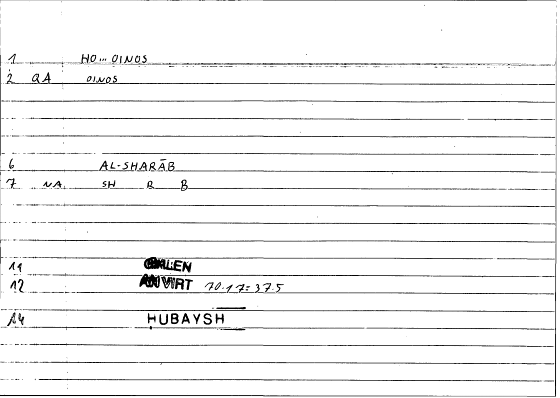 1 HO... OINOS
2 QA OINOS
6 AL-SHARĀB
7 NA SH R B
11 GALEN
12 AN VIRT 10.17:37.5
14 HUBAYSH